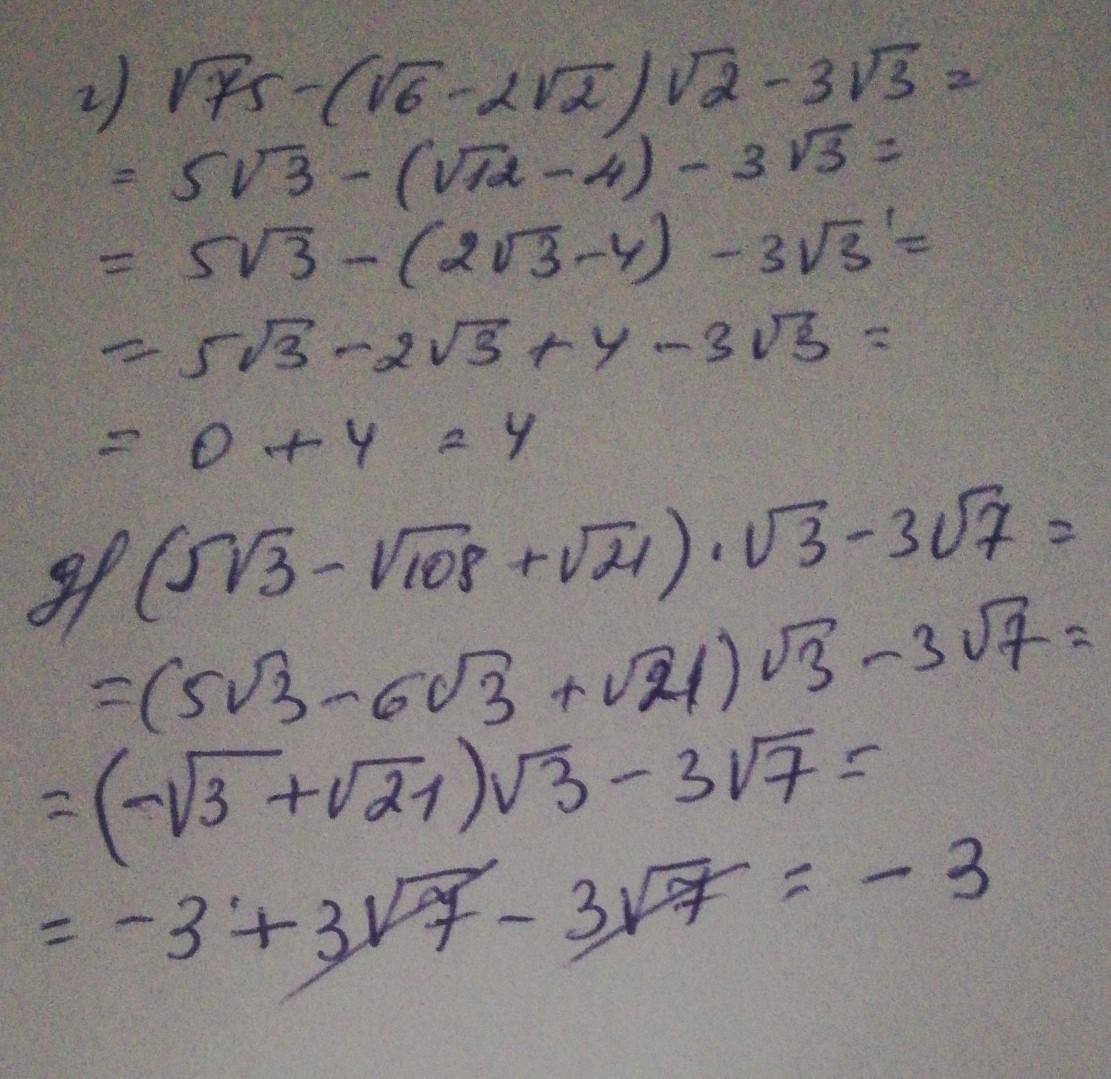 г) √75 - (√6 - 2√2)√2 - 3√3 =
= 5√3 - (√12 - 4) - 3√3 =
= 5√3 - (2√3 - 4) - 3√3 =
= 5√3 - 2√3 + 4 - 3√3 =
= 0 + 4 = 4
д) (5√3 - √108 + √21) · √3 - 3√7 =
= (5√3 - 6√3 + √21)√3 - 3√7 =
= (-√3 + √21)√3 - 3√7 =
= -3 + 3√7 - 3√7 = -3